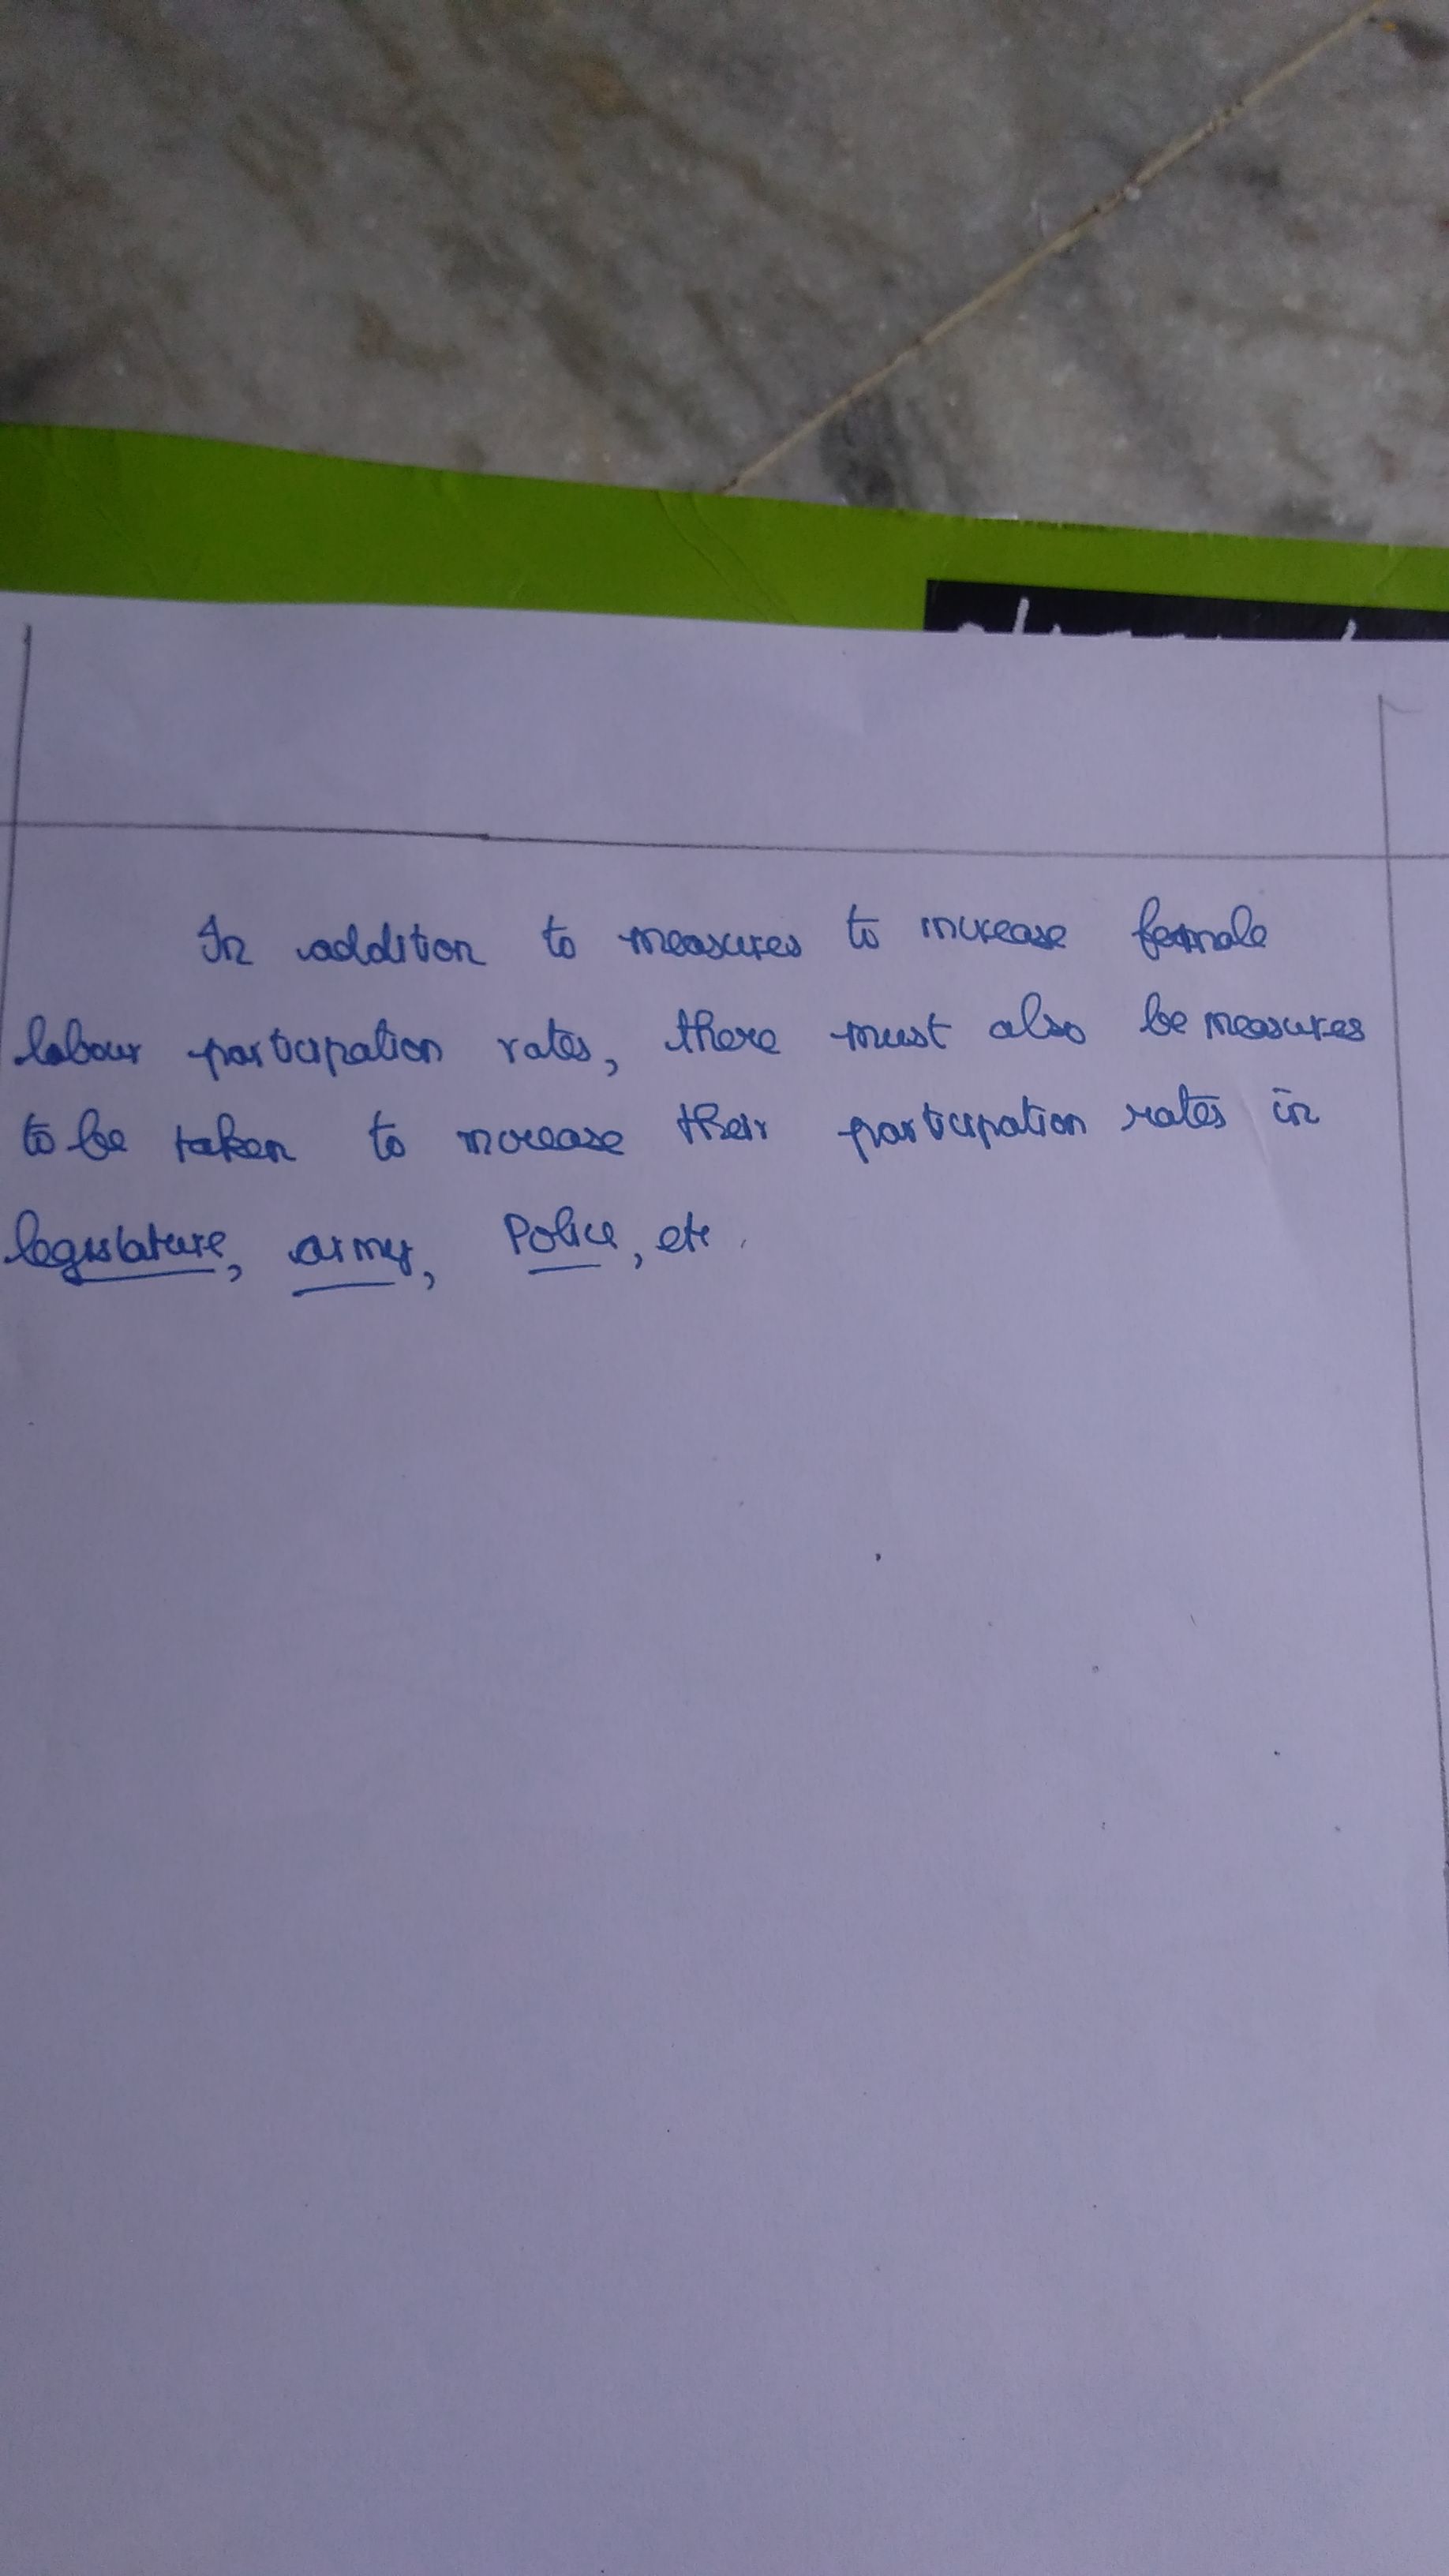 In addition to measures to increase female
labour participation rates, there must also be measures
to be taken to increase their participation rates in
legislature, army, Police, etc.